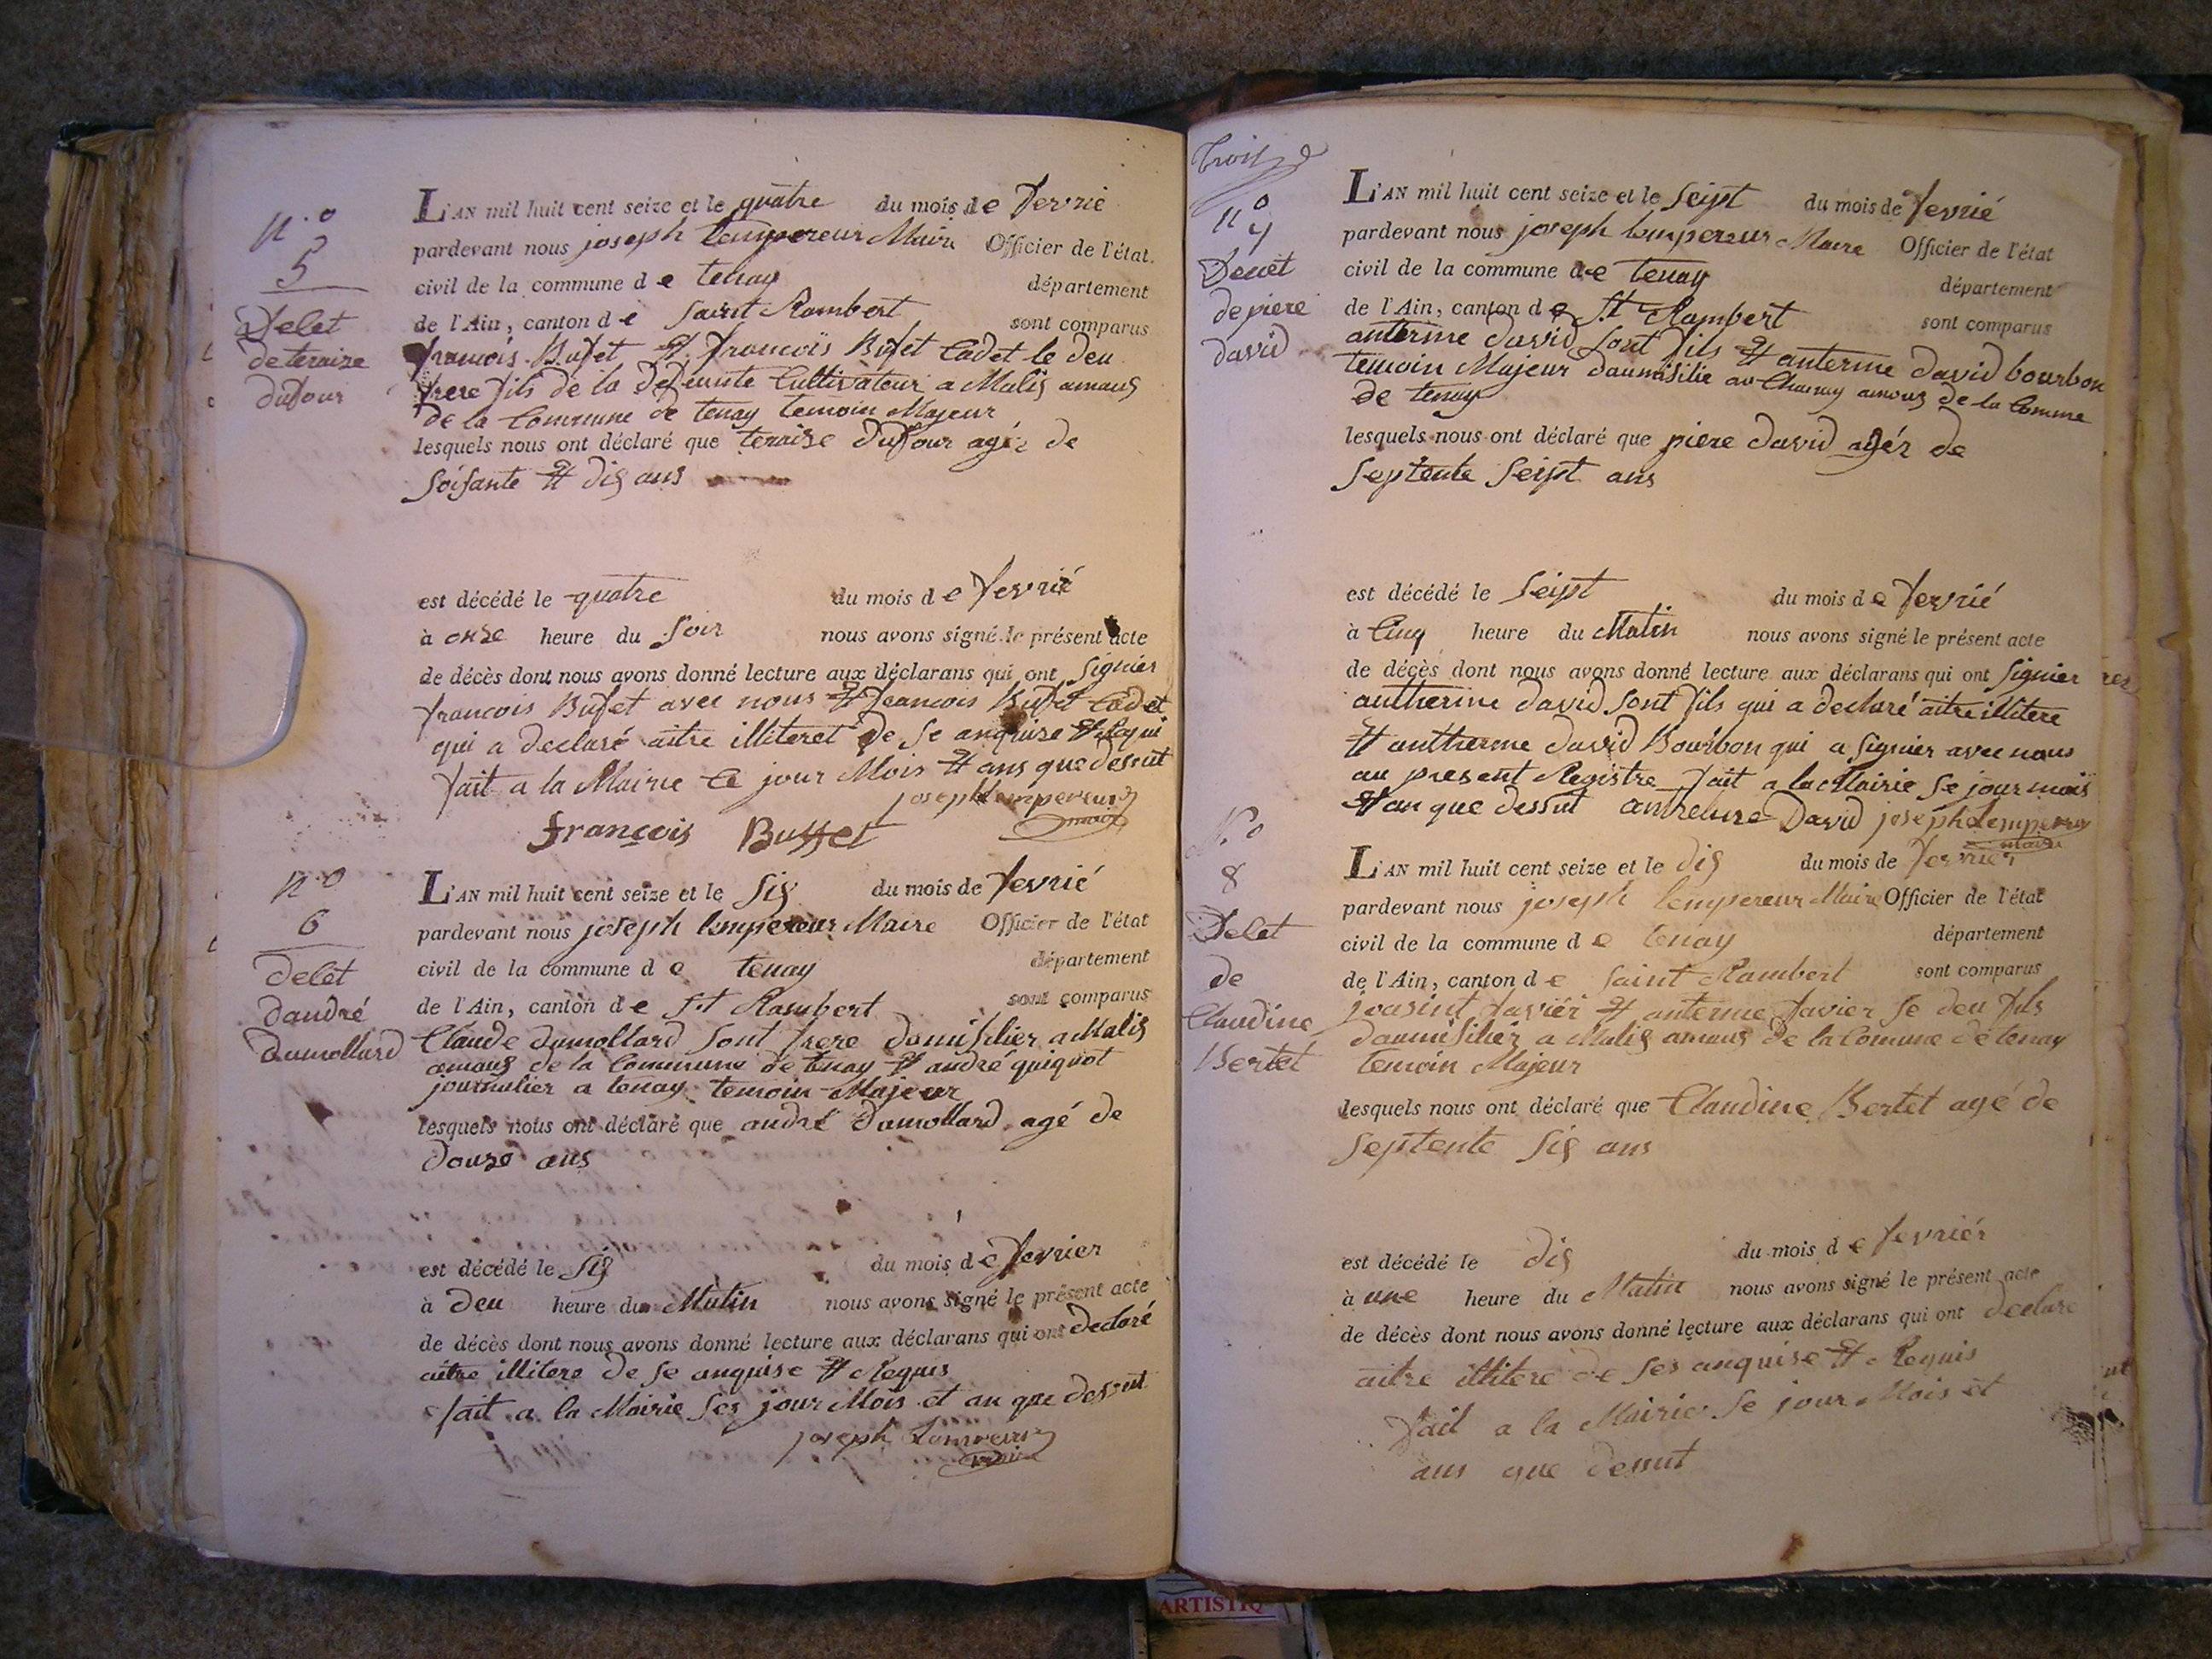 n.o
5
Deset
de teraize
dufour
L'AN mil huit cent seize et le quatre du mois de fevrié
pardevant nous joseph lempereur Maire Officier de l'état
civil de la commune de tenay département
de l'Ain, canton de saint Rambert sont comparus
francois Bufet et francois Bufet Cadet le deu
frere fils de la defeunte Cultivateur a Malis amaus
de la Commune de tenay temoin Majeur
lesquels nous ont déclaré que teraize dufour agéz de
soisante et dis ans
est décédé le quatre du mois de fevrié
à onze heure du soir nous avons signé le présent acte
de décès dont nous avons donné lecture aux déclarans qui ont signier
francois Bufet avec nous et francois Bufet Cadet
qui a declaré aitre illiteret de se anquise et
fait a la Mairie ce jour Mois et ans que dessut
joseph lempereur
maire
françois Buffet
n.o
6
deset
dandré
dumollard
L'AN mil huit cent seize et le sis du mois de fevrié
pardevant nous joseph lempereur Maire Officier de l'état
civil de la commune de tenay département
de l'Ain, canton de St Rambert sont comparus
Claude dumollard sont frere domisilier a Malis
amaus de la Commune de tenay et andré guiguot
journalier a tenay temoin Majeur
lesquels nous ont déclaré que andré dumollard agé de
douze ans
est décédé le sis du mois de fevrier
à deu heure du Matin nous avons signé le présent acte
de décès dont nous avons donné lecture aux déclarans qui ont declaré
aitre illitere de se anquise et Requis
fait a la Mairie ses jour Mois et an que dessut
joseph Lempereur
maire
troisz
n.o
7
Deset
de piere
david
L'AN mil huit cent seize et le seipt du mois de fevrié
pardevant nous joseph lempereur Maire Officier de l'état
civil de la commune de tenay département
de l'Ain, canton de St Rambert sont comparus
anterme david sont fils et anterme david bourbon
temoin Majeur daumisilie au Chanay amous de la Comme
de tenay
lesquels nous ont déclaré que piere david agéz de
septente seipt ans
est décédé le seipt du mois de fevrié
à Cinq heure du Matin nous avons signé le présent acte
de décès dont nous avons donné lecture aux déclarans qui ont signier
antherme david sont fils qui a declaré aitre illitere
et antherme david Bourbon qui a signier avec nous
au present Registre fait a la Mairie se jour mois
et an que dessut David joseph Lempereur
maire
N.o
8
Deset
de
Claudine
Bertet
L'AN mil huit cent seize et le dis du mois de fevrier
pardevant nous joseph lempereur Maire Officier de l'état
civil de la commune de tenay département
de l'Ain, canton de saint Rambert sont comparus
jousint favier et anterme favier se deu fils
daumisilier a Malis amaus de la Comune de tenay
temoin Majeur
lesquels nous ont déclaré que Claudine Bertet agé de
septente sis ans
est décédé le dis du mois de fevriér
à une heure du Matin nous avons signé le présent acte
de décès dont nous avons donné lecture aux déclarans qui ont declare
aitre illitere de ses anquise et Requis
fait a la Mairie se jour Mois et
ans que dessut
ARTISTIQ